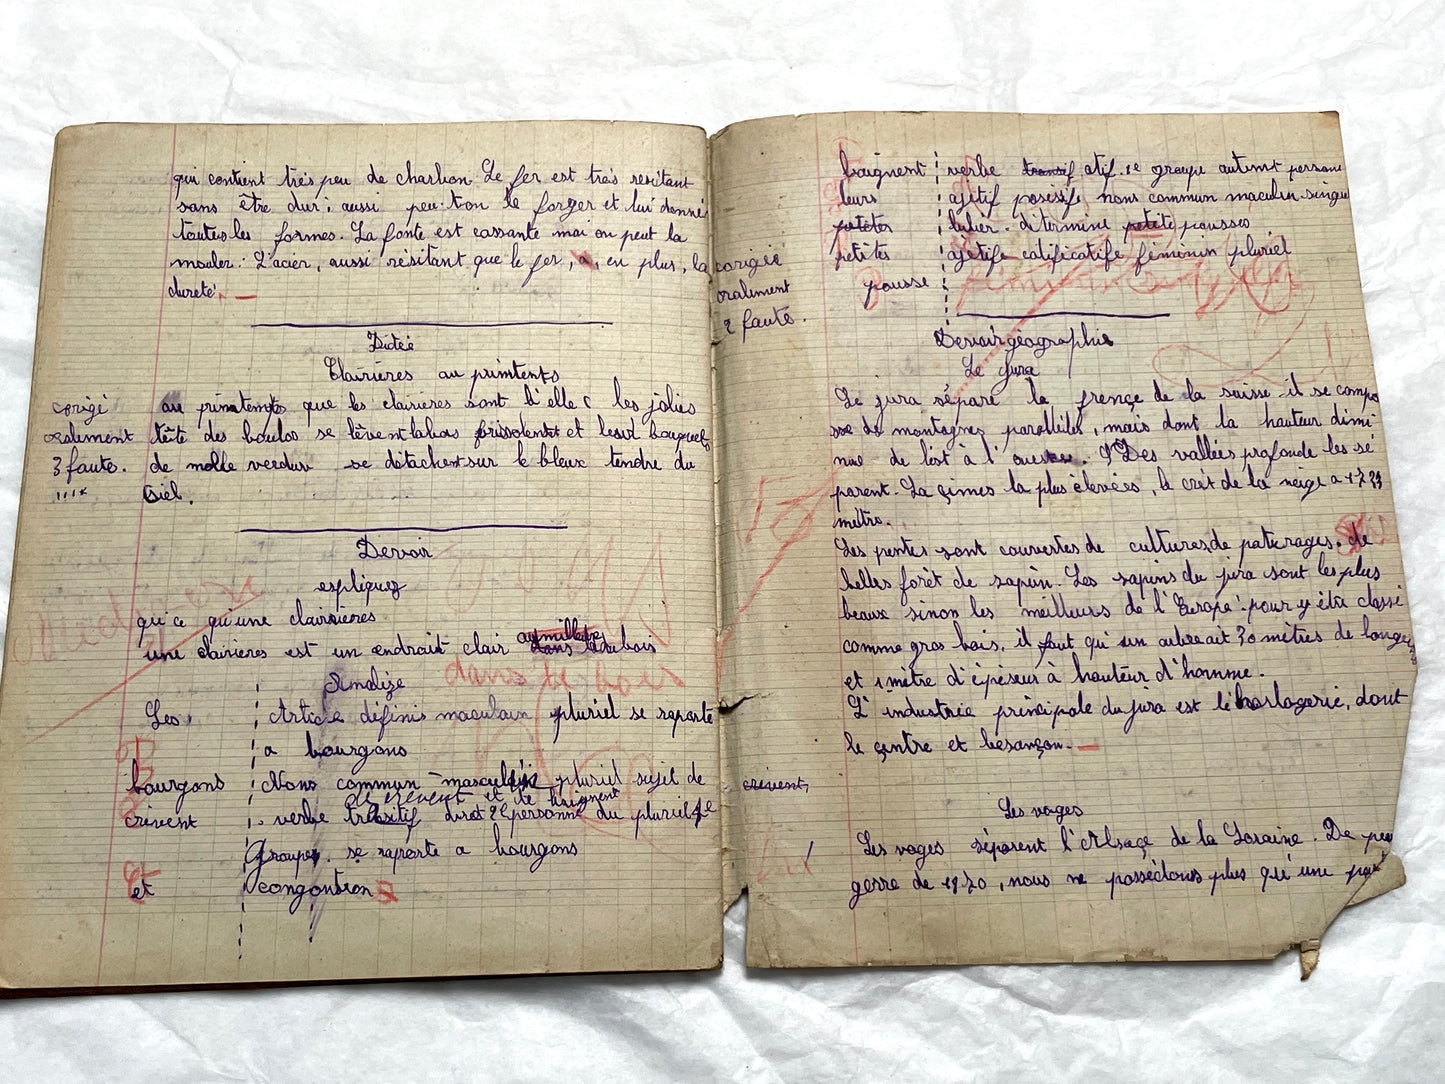 qui contient très peu de charbon. Le fer est très resitant
sans être dur; aussi peu-t'on le forger et lui donné
toutes les formes. La fonte est cassante mai on peut la
mouler. L'acier, aussi resitant que le fer, a, en plus, la
dureté.
Dictée
Clairières au primtenps
corigé
oralement
3 faute.
au printemps que les clairières sont belle les jolies
tête des boulos se lèvent labas frissolent et leur bouquets
de molle verdur se détachent sur le bleux tendre du
ciel.
Devoir
espliquez
qui ce qu'une clairières
une clairières est un endroit clair dans du bois
au millieu
dans le bois
Analize
Les Article définis masculain pluriel se raporte
a bourgons
bourgons Noms commun masculin pluriel sujet de
crèvent et de baignent
crèvent verbe trasitif dirct 3e personne du pluriel 1e
Groupe. se raporte a bourgons
et congontion
corigée
oralement
2 faute.
baignent verbe transif atif. 1e groupe autemt person
leurs ajitif posesife noms commun masculin singu
petetes lulier. ditermine petite pousses
petites ajitife calificatife féminin pluriel
pousse
Devoir géographie
Le Jura
Le jura sépare la françe de la suisse il se compo
se de montagnes paralleiles, mais dont la hauteur dimi
nue de l'est à l'ouest. Des vallées profonde les sé
parent. La çimes la plus élevées, le crêt de la neige a 1723
mètre.
Les pentes sont couvertes de cultures, de paturages. de
belles forêt de sapin. Les sapins du jura sont les plus
beaux sinon les meilleurs de l'Europe. pour y être classé
comme gros bois, il faut qui un arbre ait 30 mètres de longu
et 1 mètre d'épéseur à hauteur d'homme.
L'industrie principale du jura est l'horlogerie, dont
le çentre et besançon.
crèvent,
Les voges
Les voges séparent l'Alsaçe de la Loraine. De peu
gerre de 1970, nous ne possèdons plus qu'une part